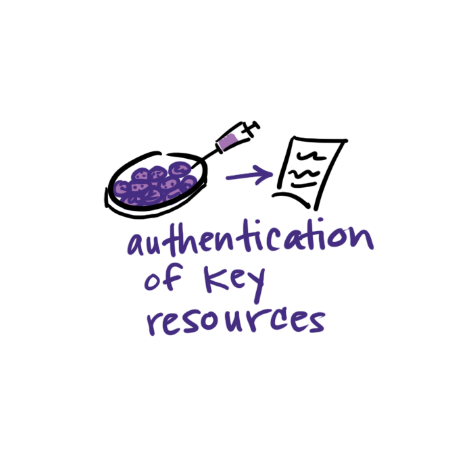 authentication
of key
resources